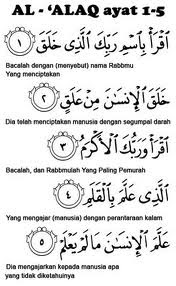 AL - ‘ALAQ ayat 1-5
ٱقْرَأْ بِٱسْمِ رَبِّكَ ٱلَّذِى خَلَقَ ١
Bacalah dengan (menyebut) nama Rabbmu
Yang menciptakan
خَلَقَ ٱلْإِنسَٰنَ مِنْ عَلَقٍ ٢
Dia telah menciptakan manusia dengan segumpal darah
ٱقْرَأْ وَرَبُّكَ ٱلْأَكْرَمُ ٣
Bacalah, dan Rabbmulah Yang Paling Pemurah
ٱلَّذِى عَلَّمَ بِٱلْقَلَمِ ٤
Yang mengajar (manusia) dengan perantaraan kalam
عَلَّمَ ٱلْإِنسَٰنَ مَا لَمْ يَعْلَمْ ٥
Dia mengajarkan kepada manusia apa
yang tidak diketahuinya